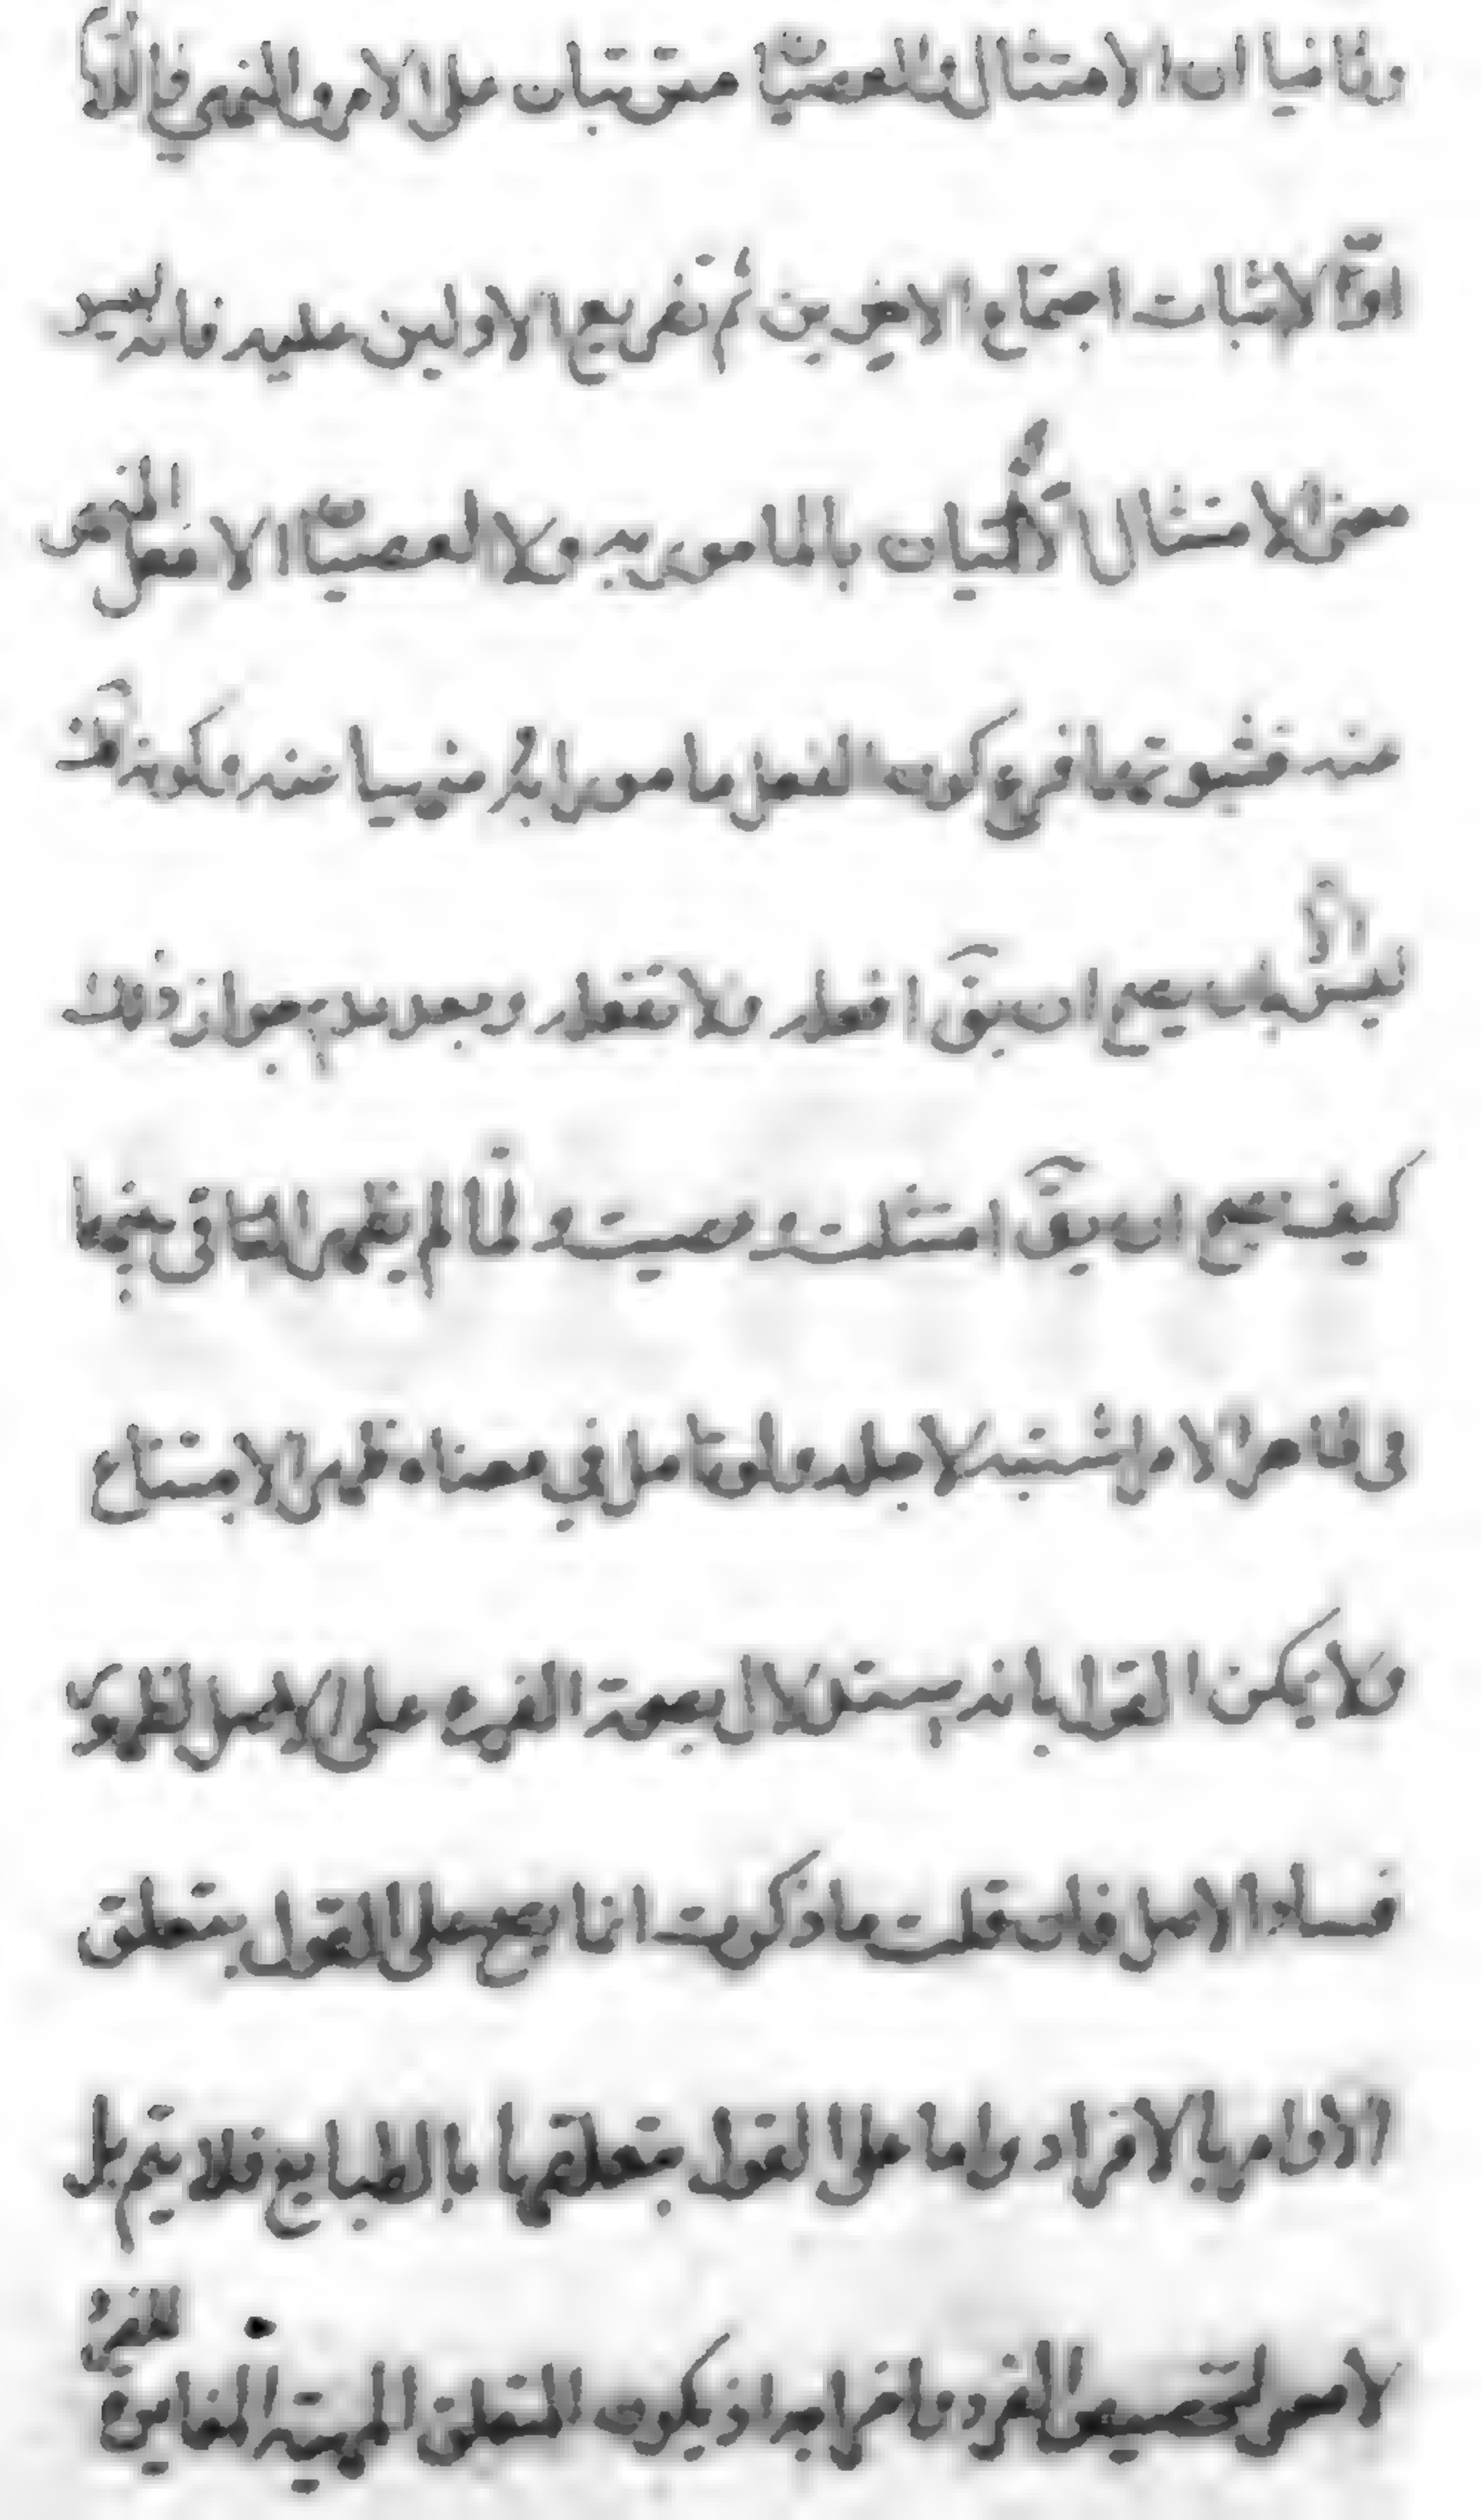 وثانيا ان الامتثال والعصيان مترتبان على الامر والنهي فاللازم
اولا اثبات اجتماع الاخيرين ثم تفريع الاولين عليه فانه ليس
معنى الامتثال الا الاتيان بالمامور به ولا العصيان الا فعل المنهى
عنه فثبوتهما فرع كون الفعل مامورا به منهيا عنه وكونه كذلك
ليس الا بان يصح ان يق افعل ولا تفعل وبعد عدم جواز ذلك
كيف يصح ان يق امتثلت وعصيت ولما لم يظهر التنافى بينهما
فى ظاهر الامر اشتبه لاجله ولو تامل في معناه ظهر الامتناع
ولا يمكن القول بانه يستدل بصحة الفرع على الاصل لظهور
فساد الاصل فان قلت ما ذكرت انما يصح على القول بتعلق
الاوامر بالافراد واما على القول بتعلقها بالطبايع فلا يتم بل
لا معنى لتخصيص الفرد واخراجه اذ يكون المتعلق المهية المغايرة للفرد